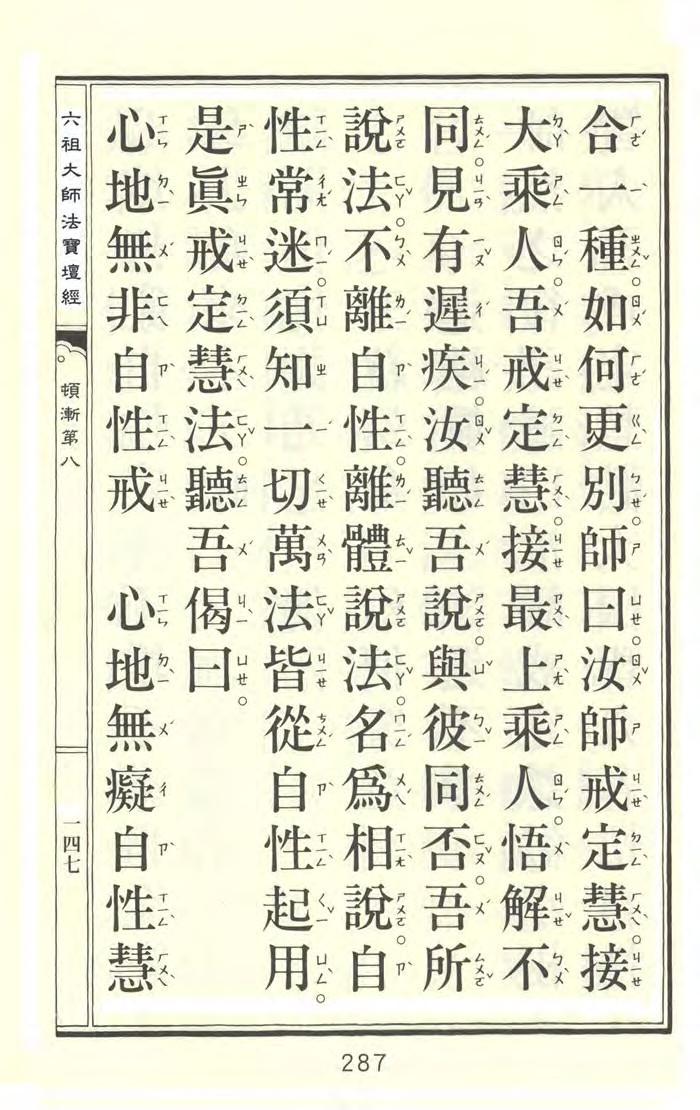 合一種如何更別。師曰。汝師戒定慧。接
大乘人。吾戒定慧。接最上乘人。悟解不
同。見有遲疾。汝聽吾說。與彼同否。吾所
說法。不離自性。離體說法。名為相說。自
性常迷。須知一切萬法皆從自性起用。
是眞戒定慧法。聽吾偈曰。
心地無非自性戒　心地無癡自性慧
六祖大師法寶壇經
頓漸第八
一四七
287